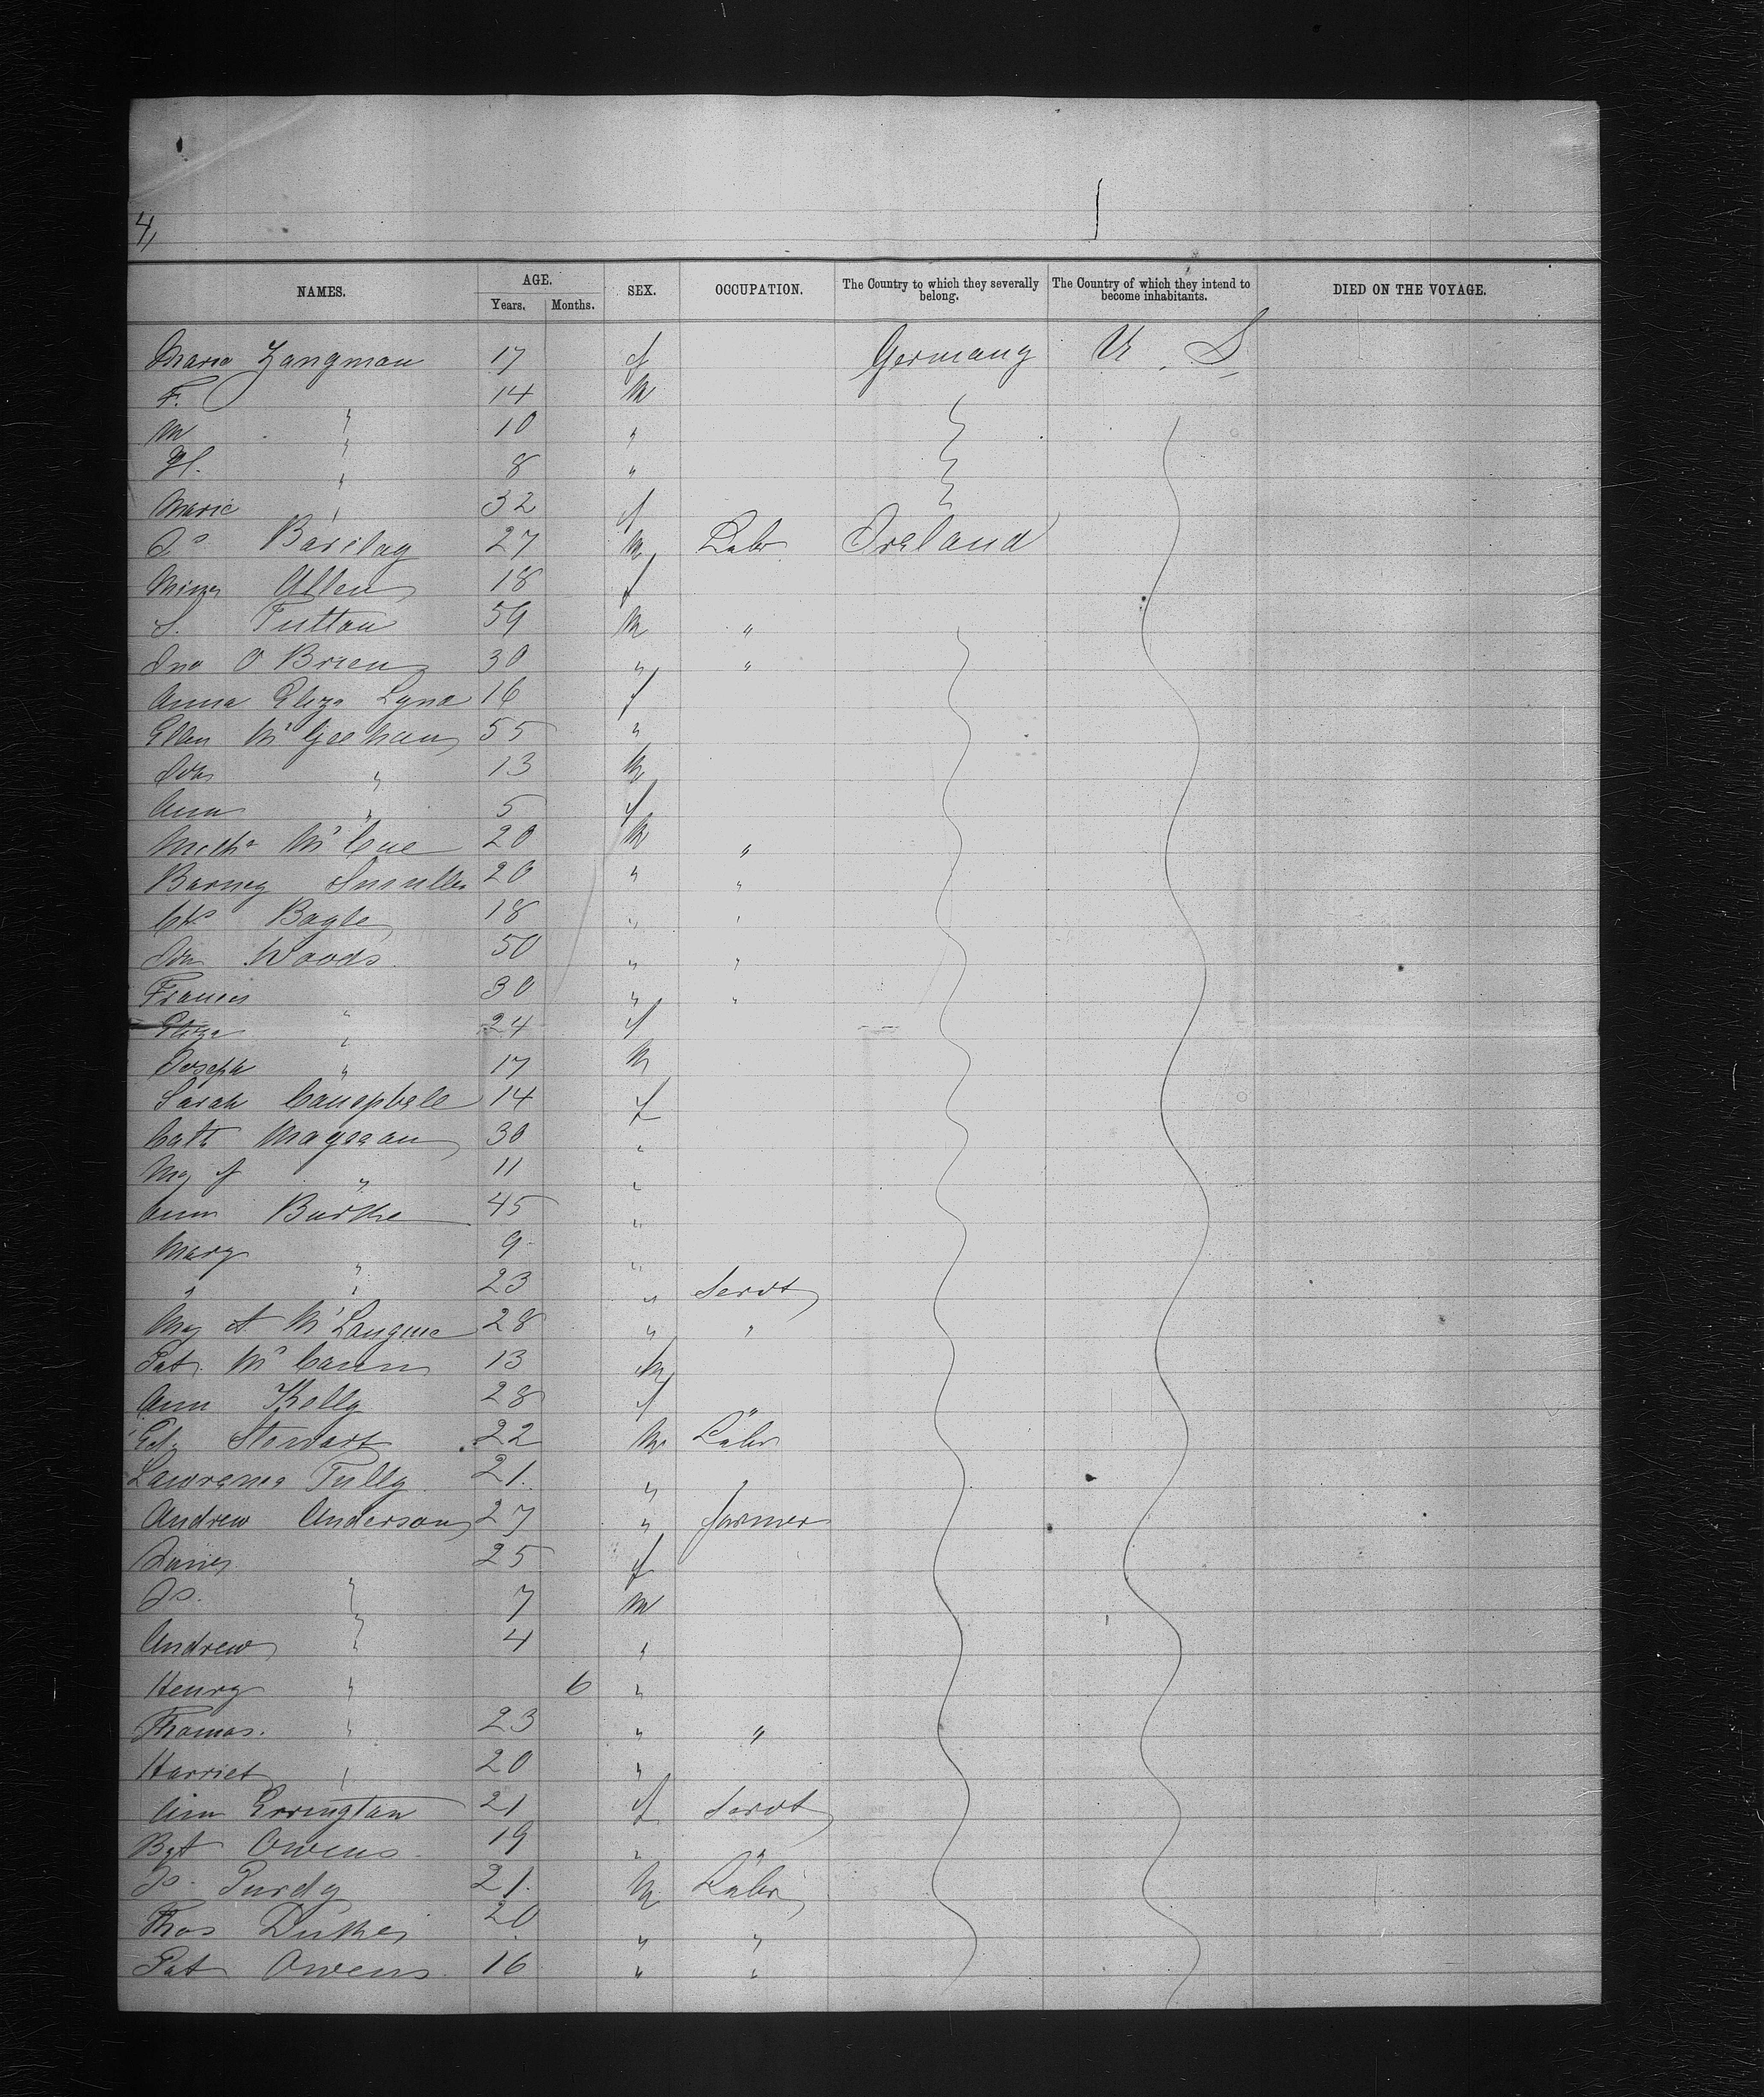 4,
NAMES. AGE. Years. Months. SEX. OCCUPATION. The Country to which they severally belong. The Country of which they intend to become inhabitants. DIED ON THE VOYAGE.
Maria Zangman 17 f Germany U. S
F. 14 M
M " 10 "
H. " 8 "
Marie " 32 f
Js Barclay 27 M Labr Ireland
Allen 18 f
S. Tutton 59 M "
Jno O'Brien 30 " "
Anna Eliza Lyna 16 f
Ellen McGeehan 55 "
Jno " 13 M
Ann " 5 f
McCue 20 M "
Barney 20 " "
Chs Bogle 18 " "
Jno Woods 50 " "
Frances " 30 " "
Eliza " 24 f
Joseph " 17 M
Sarah Campbell 14 f
Cath Mageean 30 "
My f " 11 "
Ann Burke 45 "
Mary " 9 "
" " 23 " Servt
My A 28 " "
Pat McCann 13 M
Ann Kelly 28 f "
Ed. Stewart 22 M Labr
Lawrence Tully 21 " "
Andrew Anderson 27 " farmer
25 f
Js. " 7 M
Andrew " 4 "
Henry " 6 "
Thomas. " 23 " "
Harriet " 20 "
Ann Errington 21 f Servt
Bgt Owens 19 " "
Js. Purdy 21 M Labr
Thos 20 " "
Pat Owens 16 " "